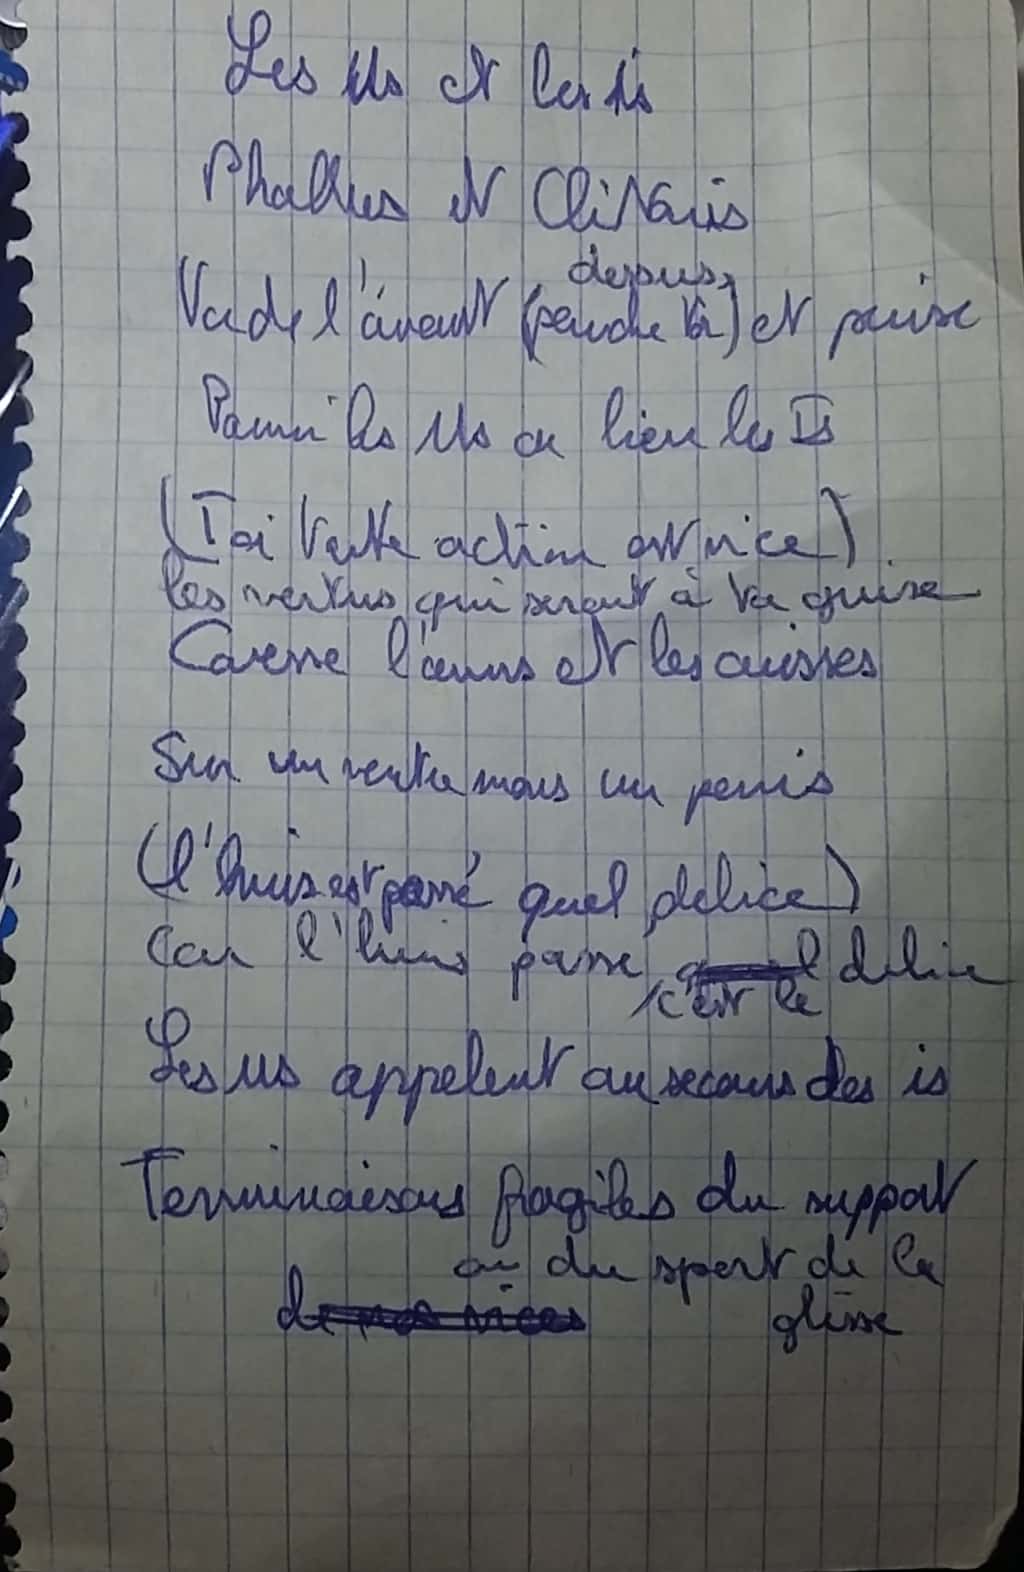 Les us et les is
Phallus et Clitoris
depuis,
Va de l'avant (penche toi) et puise
Parmi les us ou bien les Is
(Toi toute action est vice)
les vertus qui seront à ta guise
Caresse l'anus et les cuisses
Sur un ventre mais un penis
(l'huis est passé quel delice)
Car l'huis passé, quel delice
c'est le
Les us appelent au secours des is
Terminaisons fragiles du support
ou du sport de la
de nos vices glisse